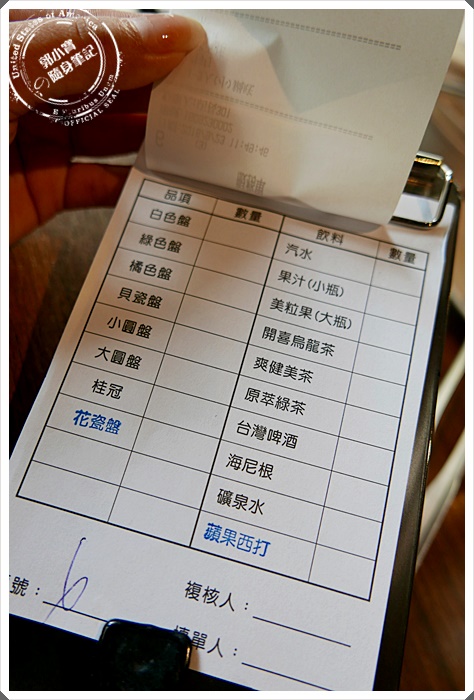 United States of America
郭小寶
の隨身筆記
E Pluribus Unum
OFFICIAL SEAL
11:48:48
品項 數量 飲料 數量
白色盤 汽水
綠色盤 果汁(小瓶)
橘色盤 美粒果(大瓶)
貝瓷盤 開喜烏龍茶
小圓盤 爽健美茶
大圓盤 原萃綠茶
桂冠 台灣啤酒
花瓷盤 海尼根
礦泉水
蘋果西打
號： 複核人：
填單人：